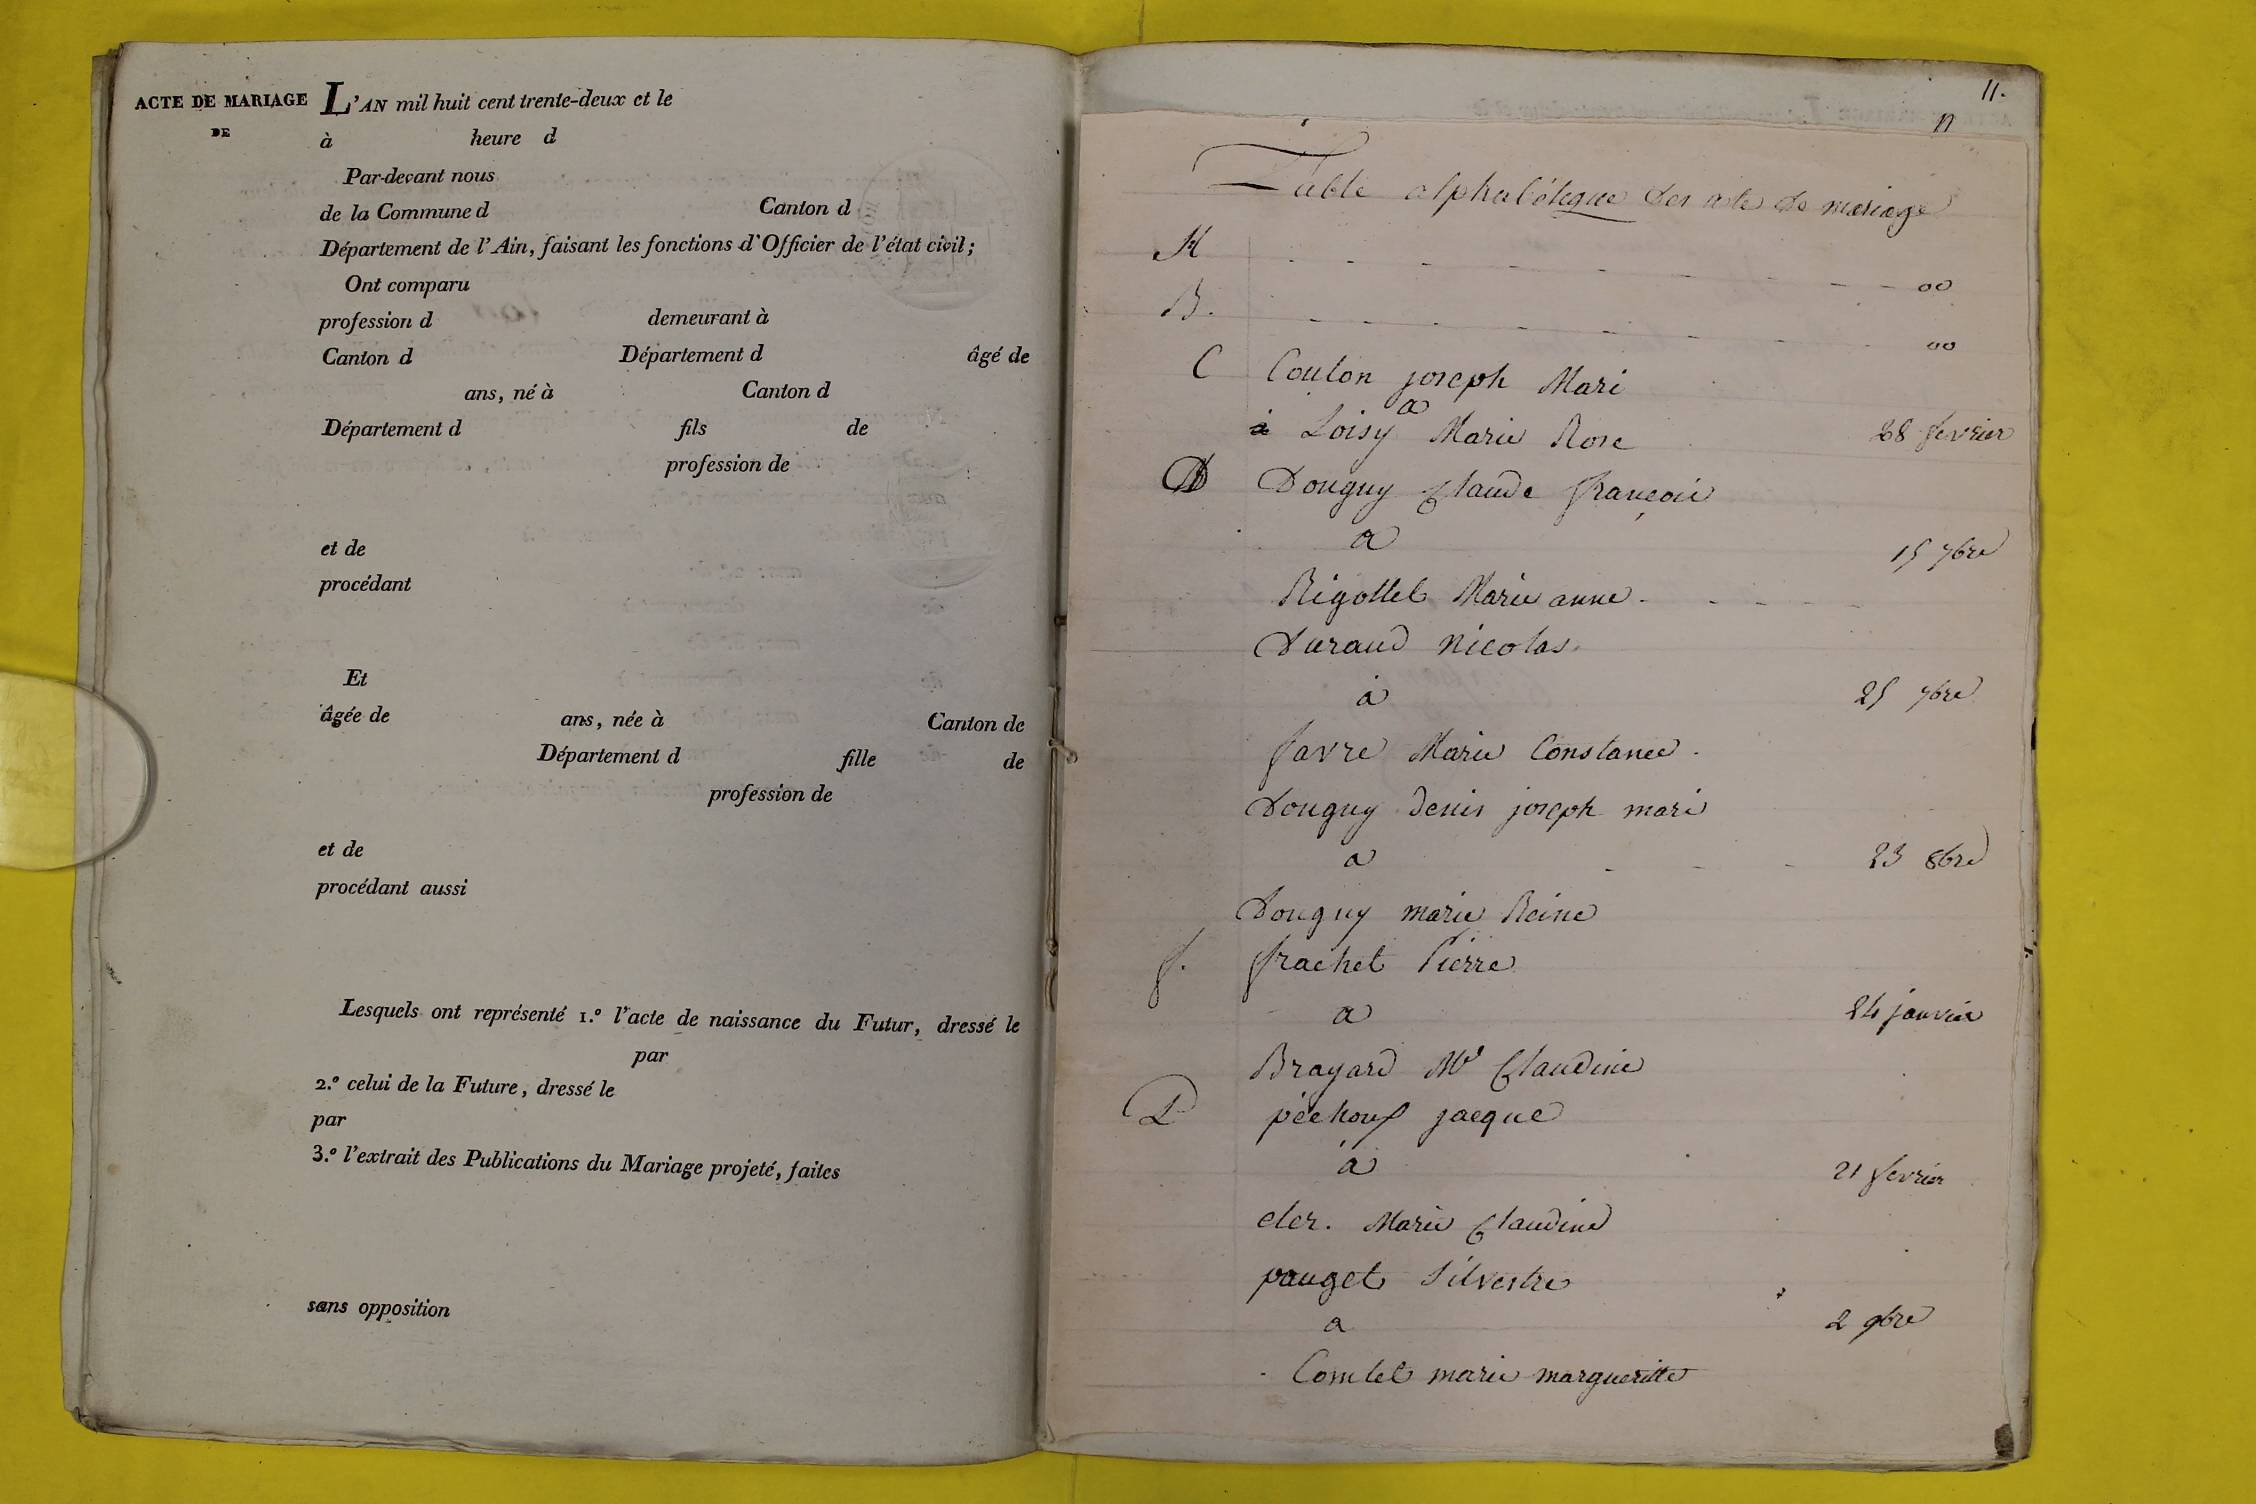 ACTE DE MARIAGE L'AN mil huit cent trente-deux et le
DE
à heure d
Par-devant nous
de la Commune d Canton d
Département de l'Ain, faisant les fonctions d'Officier de l'état civil;
Ont comparu
profession d demeurant à
Canton d Département d âgé de
ans, né à Canton d
Département d fils de
profession de
et de
procédant
Et
âgée de ans, née à Canton de
Département d fille de
profession de
et de
procédant aussi
Lesquels ont représenté 1.º l'acte de naissance du Futur, dressé le
par
2.º celui de la Future, dressé le
par
3.º l'extrait des Publications du Mariage projeté, faites
sans opposition
11.
Table alphabétique des acte de mariage
00
B. 00
C Coulon joseph Mari
à
Loisy Marie Rose 28 fevrier
D Douguy Claude françois
a 15 7bre
Rigottet Marie anne
Durand Nicolas
à 25 7bre
favre Marie Constance
Douguy denis joseph mari
a 23 8bre
Douguy marie Reine
f. frachet Pierre
a 24 janvier
Brayard Me Claudine
jacque
à 21 fevrier
Marie Claudine
pauget Silvestre
a 2 9bre
Comtet marie margueritte